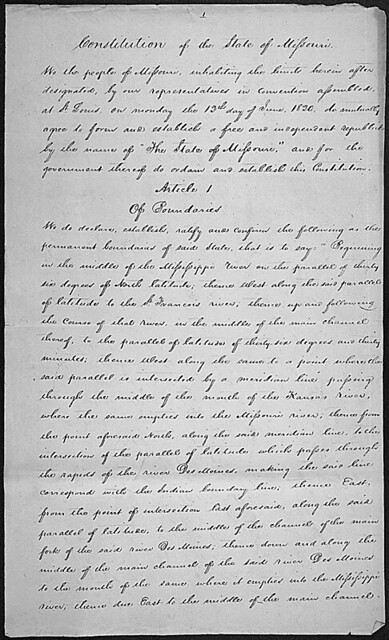 1
Constitution of the State of Missouri.
We the people of Missouri, inhabiting the limits herein after
designated, by our representatives in convention assembled,
at St Louis, on monday the 12th day of June, 1820, do mutually
agree to form and establish a free and independent republic
by the name of "The State of Missouri," and for the
government thereof do ordain and establish this Constitution.
Article 1
Of Boundaries
We do declare, establish, ratify and confirm the following as the
permanent boundaries of said State, that is to say: "Beginning
in the middle of the Mississippi river on the parallel of thirty
six degrees of North latitude; thence West along the said parallel
of latitude to the St Francois river; thence up and following
the course of that river, in the middle of the main channel
thereof, to the parallel of latitude of thirty six degrees and thirty
minutes; thence West along the same to a point where the
said parallel is intersected by a meridian line passing
through the middle of the mouth of the Kansas river,
where the same empties into the Missouri river; thence from
the point aforesaid North, along the said meridian line, to the
intersection of the parallel of latitude which passes through
the rapids of the river Des Moines, making the said line
correspond with the Indian boundary line; thence East,
from the point of intersection last aforesaid, along the said
parallel of latitude, to the middle of the channel of the main
fork of the said river Des Moines; thence down and along the
middle of the main channel of the said river Des Moines
to the mouth of the same where it empties into the Mississippi
river; thence due East to the middle of the main channel